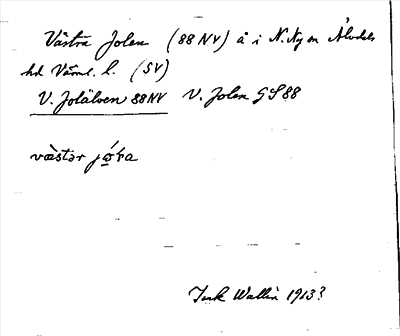 Västra Jolen (88 NV) å i N. Ny sn Älvdals
hd Värml. l. (SV)
V. Jolälven 88 NV V. Jolen GS 88
væ̀stər
Wallin 1913?